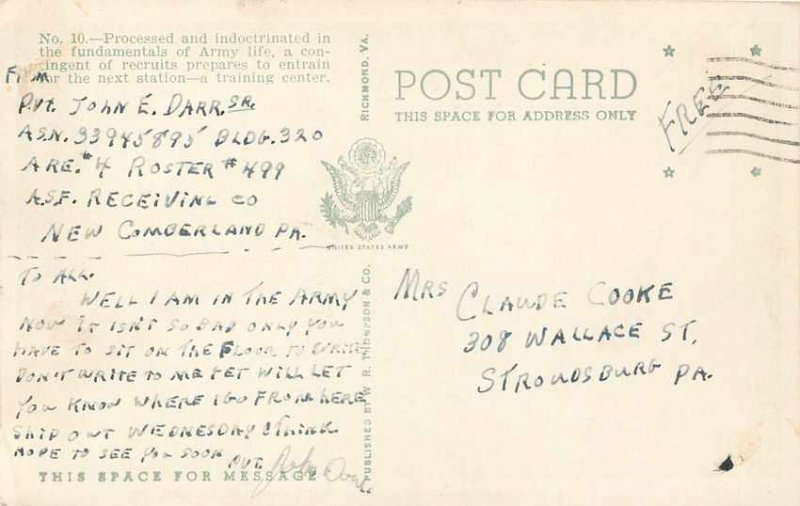 No. 10.—Processed and indoctrinated in
the fundamentals of Army life, a con-
tingent of recruits prepares to entrain
for the next station—a training center.
From
Pvt. John E. Darr, Sr.
A.S.N. 33945895 Bldg. 320
Are. #4 Roster #499
A.S.F. Receiving Co
New Comberland Pa.
To All.
Well I am in the Army
now it isn't so bad only you
have to sit on the floor to write
Don't write to me yet will let
you know where I go from here
Ship out Wednesday I think
Hope to see you soon
Pvt. John Darr
THIS SPACE FOR MESSAGE
RICHMOND, VA.
PUBLISHED BY W. R. THOMPSON & CO.
UNITED STATES ARMY
POST CARD
THIS SPACE FOR ADDRESS ONLY
FREE
Mrs Claude Cooke
308 Wallace St.
Stroudsburg Pa.